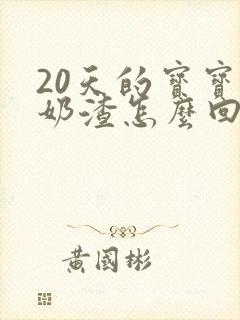 20天的寶寶
奶渣怎麼回
黃國彬